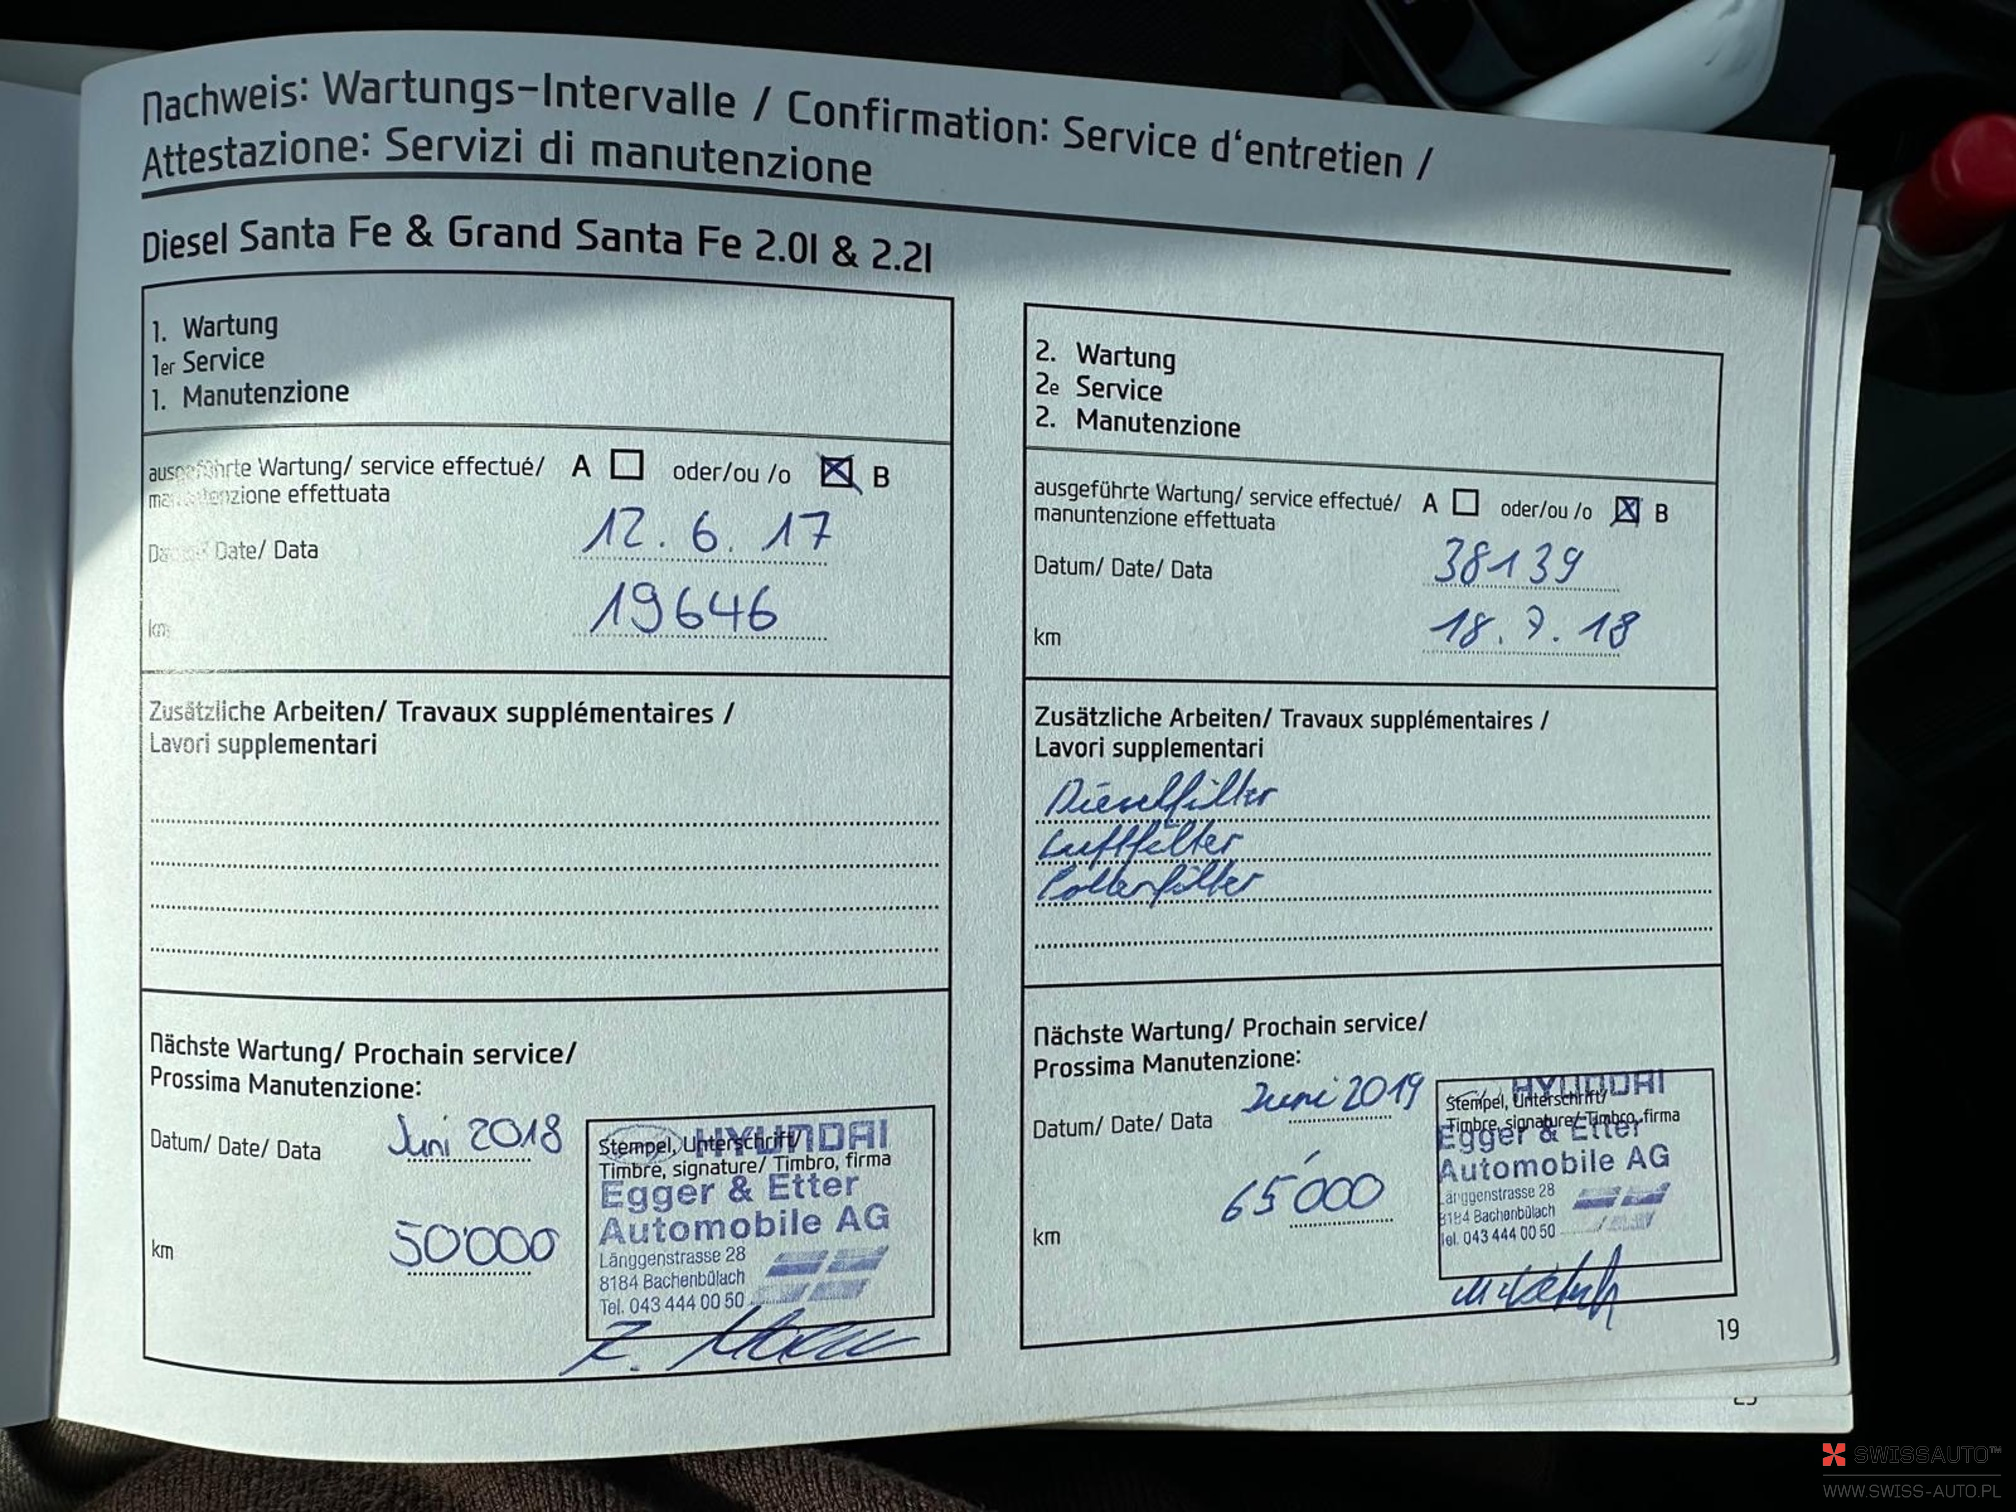 Nachweis: Wartungs-Intervalle / Confirmation: Service d'entretien /
Attestazione: Servizi di manutenzione
Diesel Santa Fe & Grand Santa Fe 2.0l & 2.2l
1. Wartung
1er Service
1. Manutenzione
ausgeführte Wartung/ service effectué/ A oder/ou /o B
manutenzione effettuata
Date/ Data 12.6.17
km 19646
Zusätzliche Arbeiten/ Travaux supplémentaires /
Lavori supplementari
Nächste Wartung/ Prochain service/
Prossima Manutenzione:
Datum/ Date/ Data Juni 2018
km 50'000
HYUNDAI
Stempel, Unterschrift/
Timbre, signature/ Timbro, firma
Egger & Etter
Automobile AG
Länggenstrasse 28
8184 Bachenbülach
Tel. 043 444 00 50
2. Wartung
2e Service
2. Manutenzione
ausgeführte Wartung/ service effectué/ A oder/ou /o B
manuntenzione effettuata
Datum/ Date/ Data 38139
km 18.7.18
Zusätzliche Arbeiten/ Travaux supplémentaires /
Lavori supplementari
Dieselfilter
Luftfilter
Pollenfilter
Nächste Wartung/ Prochain service/
Prossima Manutenzione:
Datum/ Date/ Data Juni 2019
km 65'000
HYUNDAI
Stempel, Unterschrift/
Timbre, signature/ Timbro, firma
Egger & Etter
Automobile AG
Länggenstrasse 28
8184 Bachenbülach
Tel. 043 444 00 50
19
SWISSAUTO™
WWW.SWISS-AUTO.PL